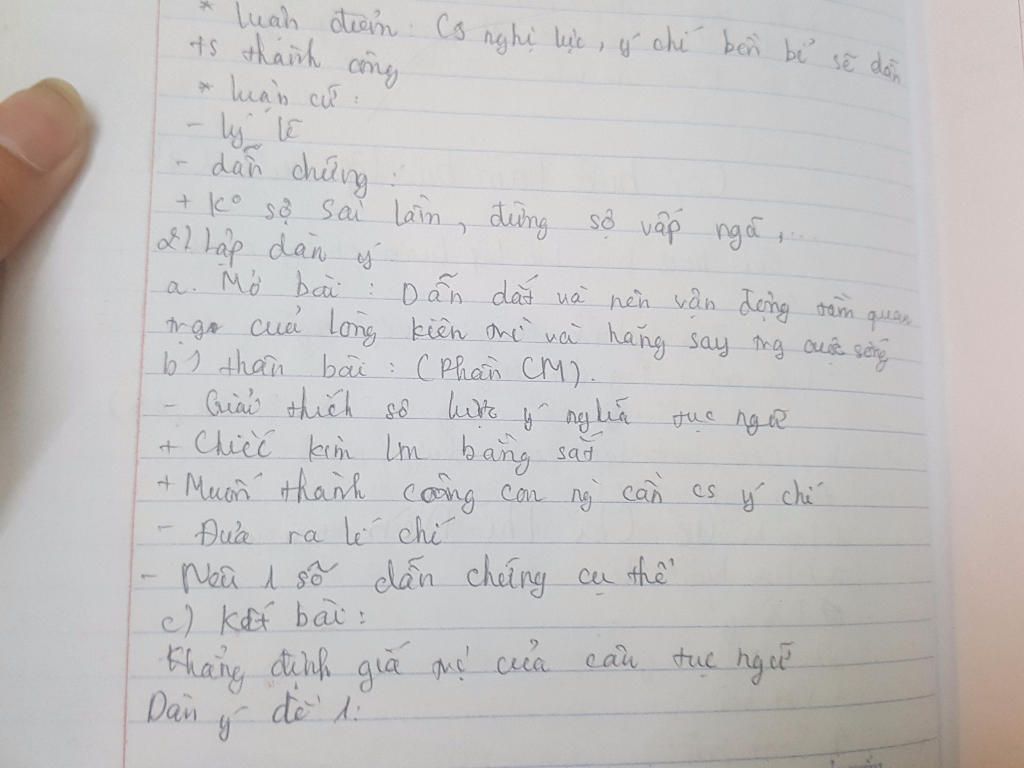 * luận điểm: Có nghị lực, ý chí bền bỉ sẽ dẫn
ts thành công
* luận cứ:
- lý lẽ
- dẫn chứng:
+ Ko sợ sai lầm, đừng sợ vấp ngã,...
2) Lập dàn ý
a. Mở bài: Dẫn dắt và nên vận động tầm quan
trg của lòng kiên trì và hăng say trg cuộc sống
b) thân bài: (Phần CM).
- Giải thích sơ lược ý nghĩa tục ngữ
+ Chiếc kim lm bằng sắt
+ Muốn thành công con ng cần cs ý chí
- Đưa ra lí chí
- Nêu 1 số dẫn chứng cụ thể
c) Kết bài:
Khẳng định giá trị của câu tục ngữ
Dàn ý đề 1: